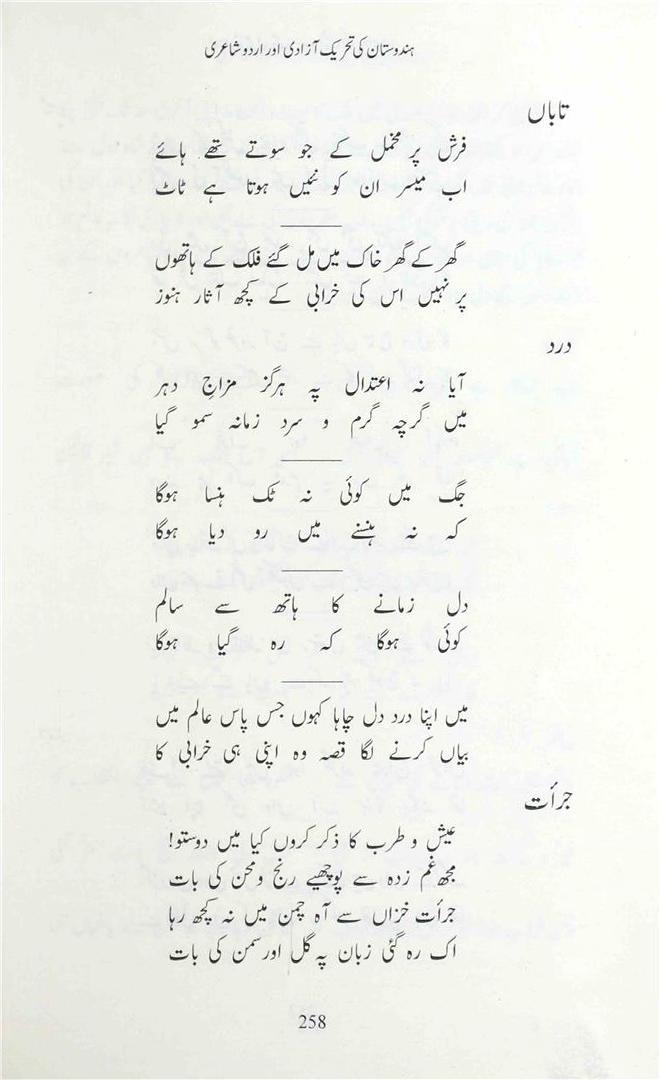 ہندوستان کی تحریک آزادی اور اردو شاعری
تاباں
فرش پر مخمل کے جو سوتے تھے ہائے
اب میسر ان کو نئیں ہوتا ہے ٹاٹ
گھر کے گھر خاک میں مل گئے فلک کے ہاتھوں
پر نہیں اس کی خرابی کے کچھ آثار ہنوز
درد
آیا نہ اعتدال پہ ہرگز مزاجِ دہر
میں گرچہ گرم و سرد زمانہ سمو گیا
جگ میں کوئی نہ ٹک ہنسا ہوگا
کہ نہ ہنسنے میں رو دیا ہوگا
دل زمانے کا ہاتھ سے سالم
کوئی ہوگا کہ رہ گیا ہوگا
میں اپنا درد دل چاہا کہوں جس پاس عالم میں
بیاں کرنے لگا قصہ وہ اپنی ہی خرابی کا
جرأت
عیش و طرب کا ذکر کروں کیا میں دوستو!
مجھ غم زدہ سے پوچھیے رنج و محن کی بات
جرأت خزاں سے آہ چمن میں نہ کچھ رہا
اک رہ گئی زبان پہ گل اور سمن کی بات
258